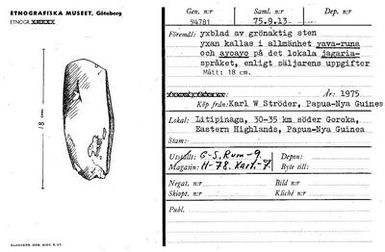 ETNOGRAFISKA MUSEET, Göteborg
ETNOGR.
18 cm
Gen. nr
94781
Saml. nr
75.9.13-
Dep. nr
Föremål: yxblad av grönaktig sten
yxan kallas i allmänhet yava-runa
och ayoayo på det lokala jagaria-
språket, enligt säljarens uppgifter
Mått: 18 cm.
År: 1975
Köp från: Karl W Ströder, Papua-Nya Guinea
Lokal: Litipinaga, 30-35 km söder Goroka,
Eastern Highlands, Papua-Nya Guinea
Stam:
Utställt: G-S, Rum-9
Depon:
Magasin: H-78. Kart.-7
Byte till:
Negat. nr
Bild nr
Skiopt. nr
Kliché nr
Publ.